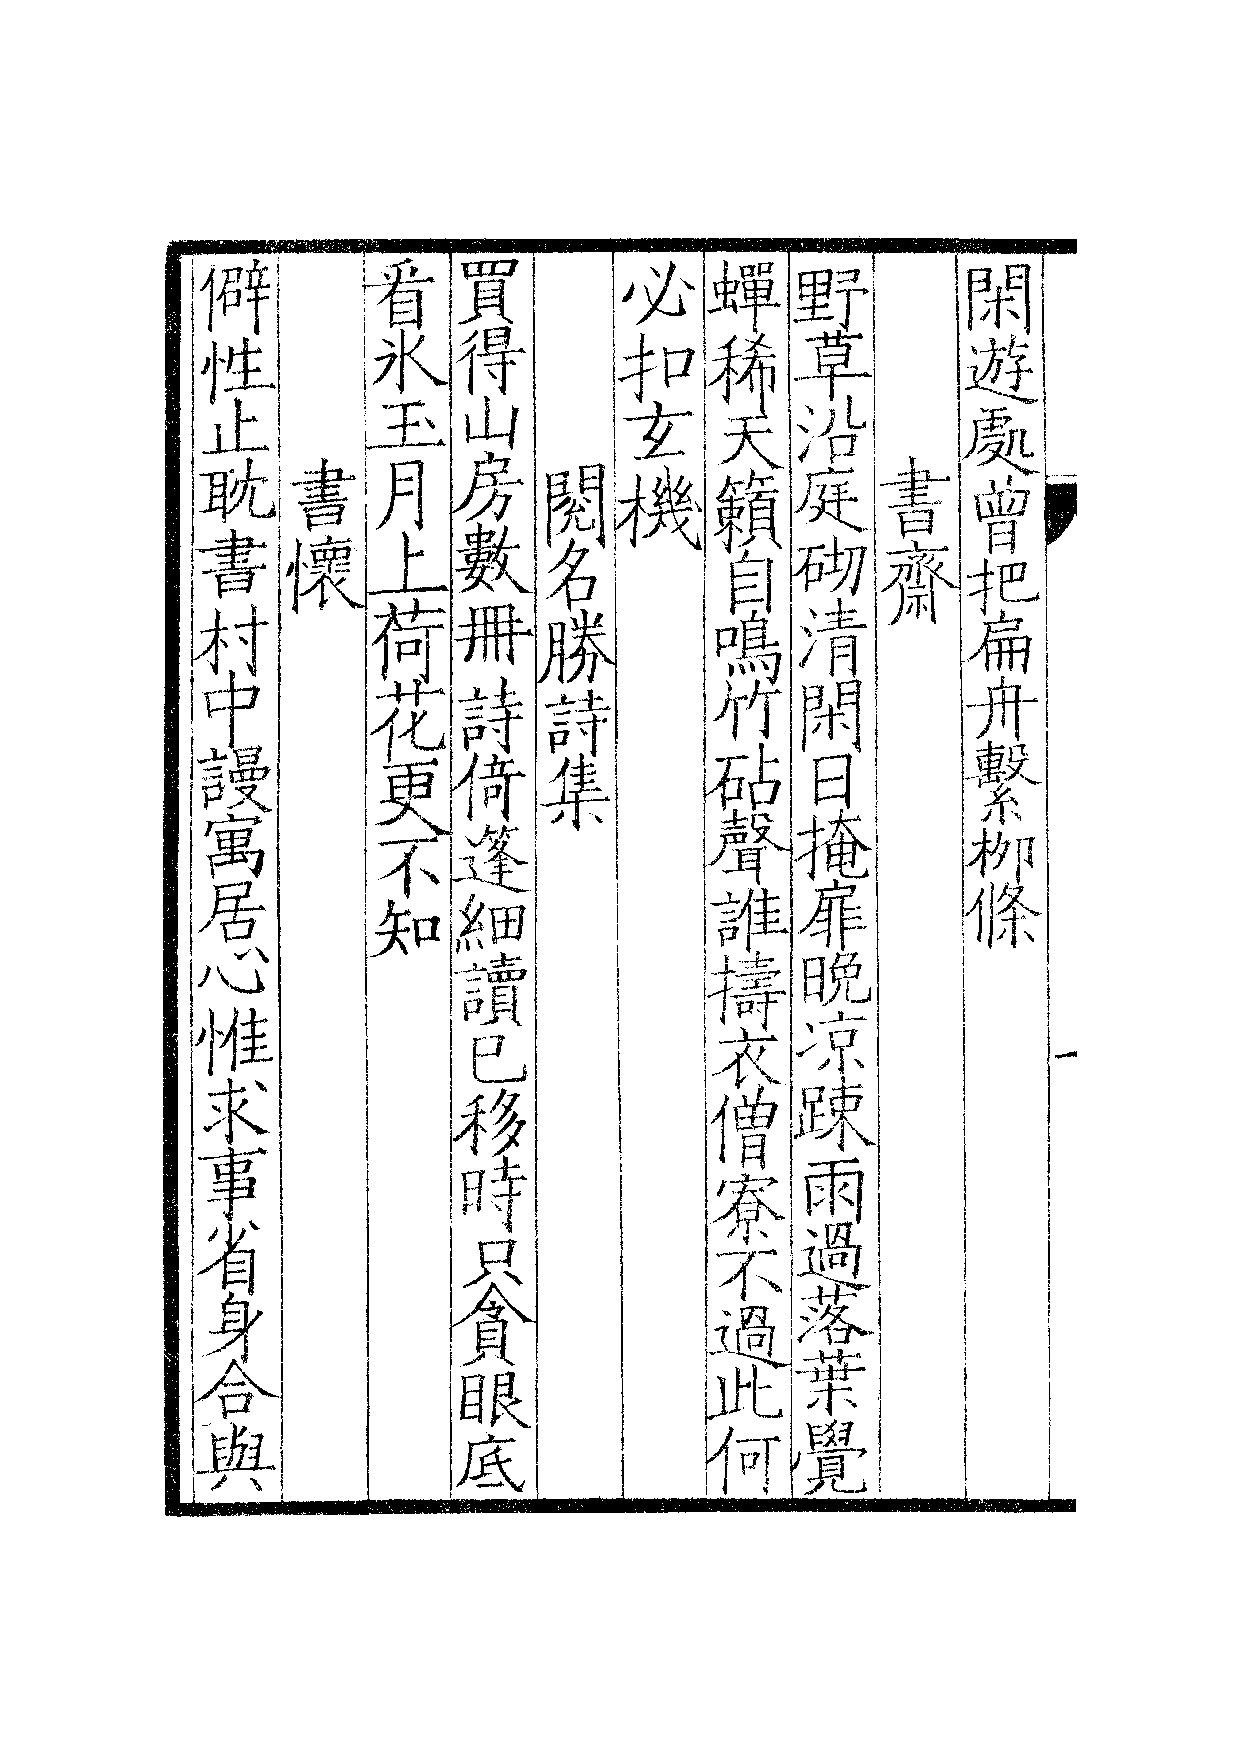 閑遊處曾把扁舟繫栁條
書齋
野草沿庭砌清閑日掩扉晚凉踈雨過落葉覺
蟬稀天籟自鳴竹砧聲誰擣衣僧寮不過此何
必扣玄機
閱名勝詩集
買得山房數冊詩倚篷細讀已移時只貪眼底
看氷玉月上荷花更不知
書懷
僻性止耽書村中謾寓居心惟求事省身合與